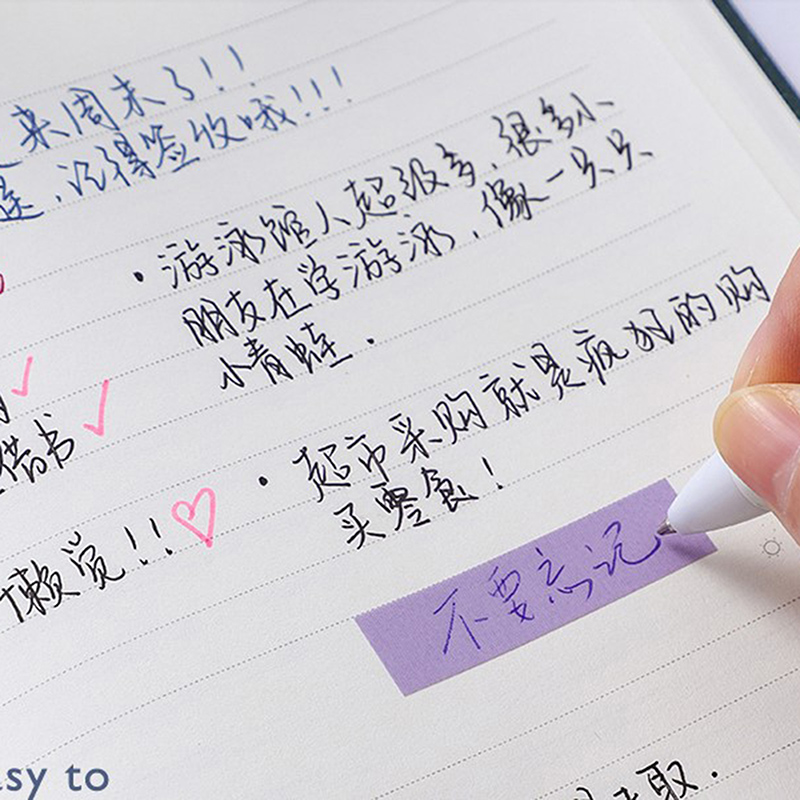 来周末了!!
记得签收哦!!!
· 游泳馆人超级多,很多小
朋友在学游泳,像一只只
小青蛙.
借书 ✓
懒觉!!♡
· 超市采购就是疯狂的购
买零食!
不要忘记
取.
sy to